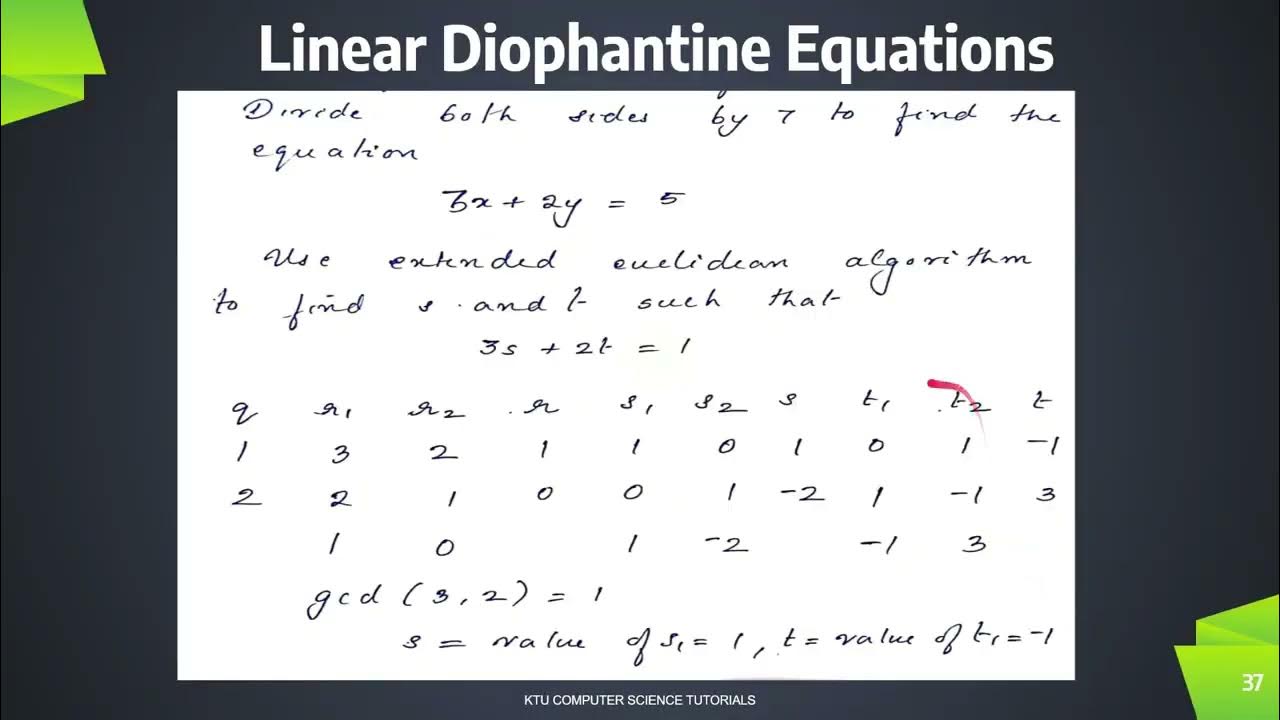 Linear Diophantine Equations
Divide both sides by 7 to find the
equation
3x + 2y = 5
Use extended euclidean algorithm
to find s and t such that
3s + 2t = 1
q r1 r2 r s1 s2 s t1 t2 t
1 3 2 1 1 0 1 0 1 -1
2 2 1 0 0 1 -2 1 -1 3
1 0 1 -2 -1 3
gcd (3, 2) = 1
s = value of s1 = 1, t = value of t1 = -1
KTU COMPUTER SCIENCE TUTORIALS
37